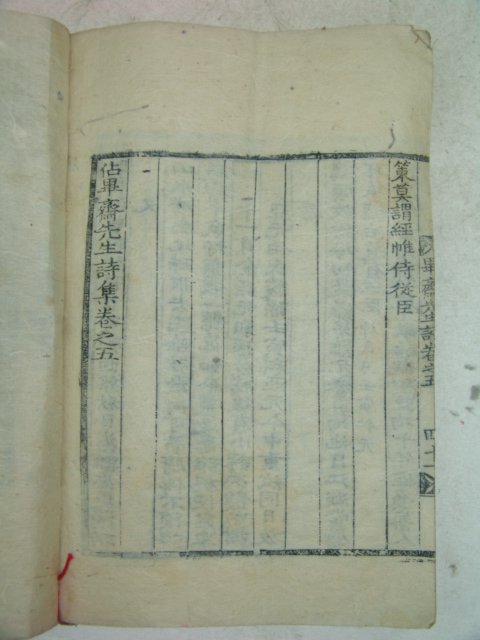 策莫謂經帷侍從臣
佔畢齋先生詩集卷之五
畢齋先生詩卷之五